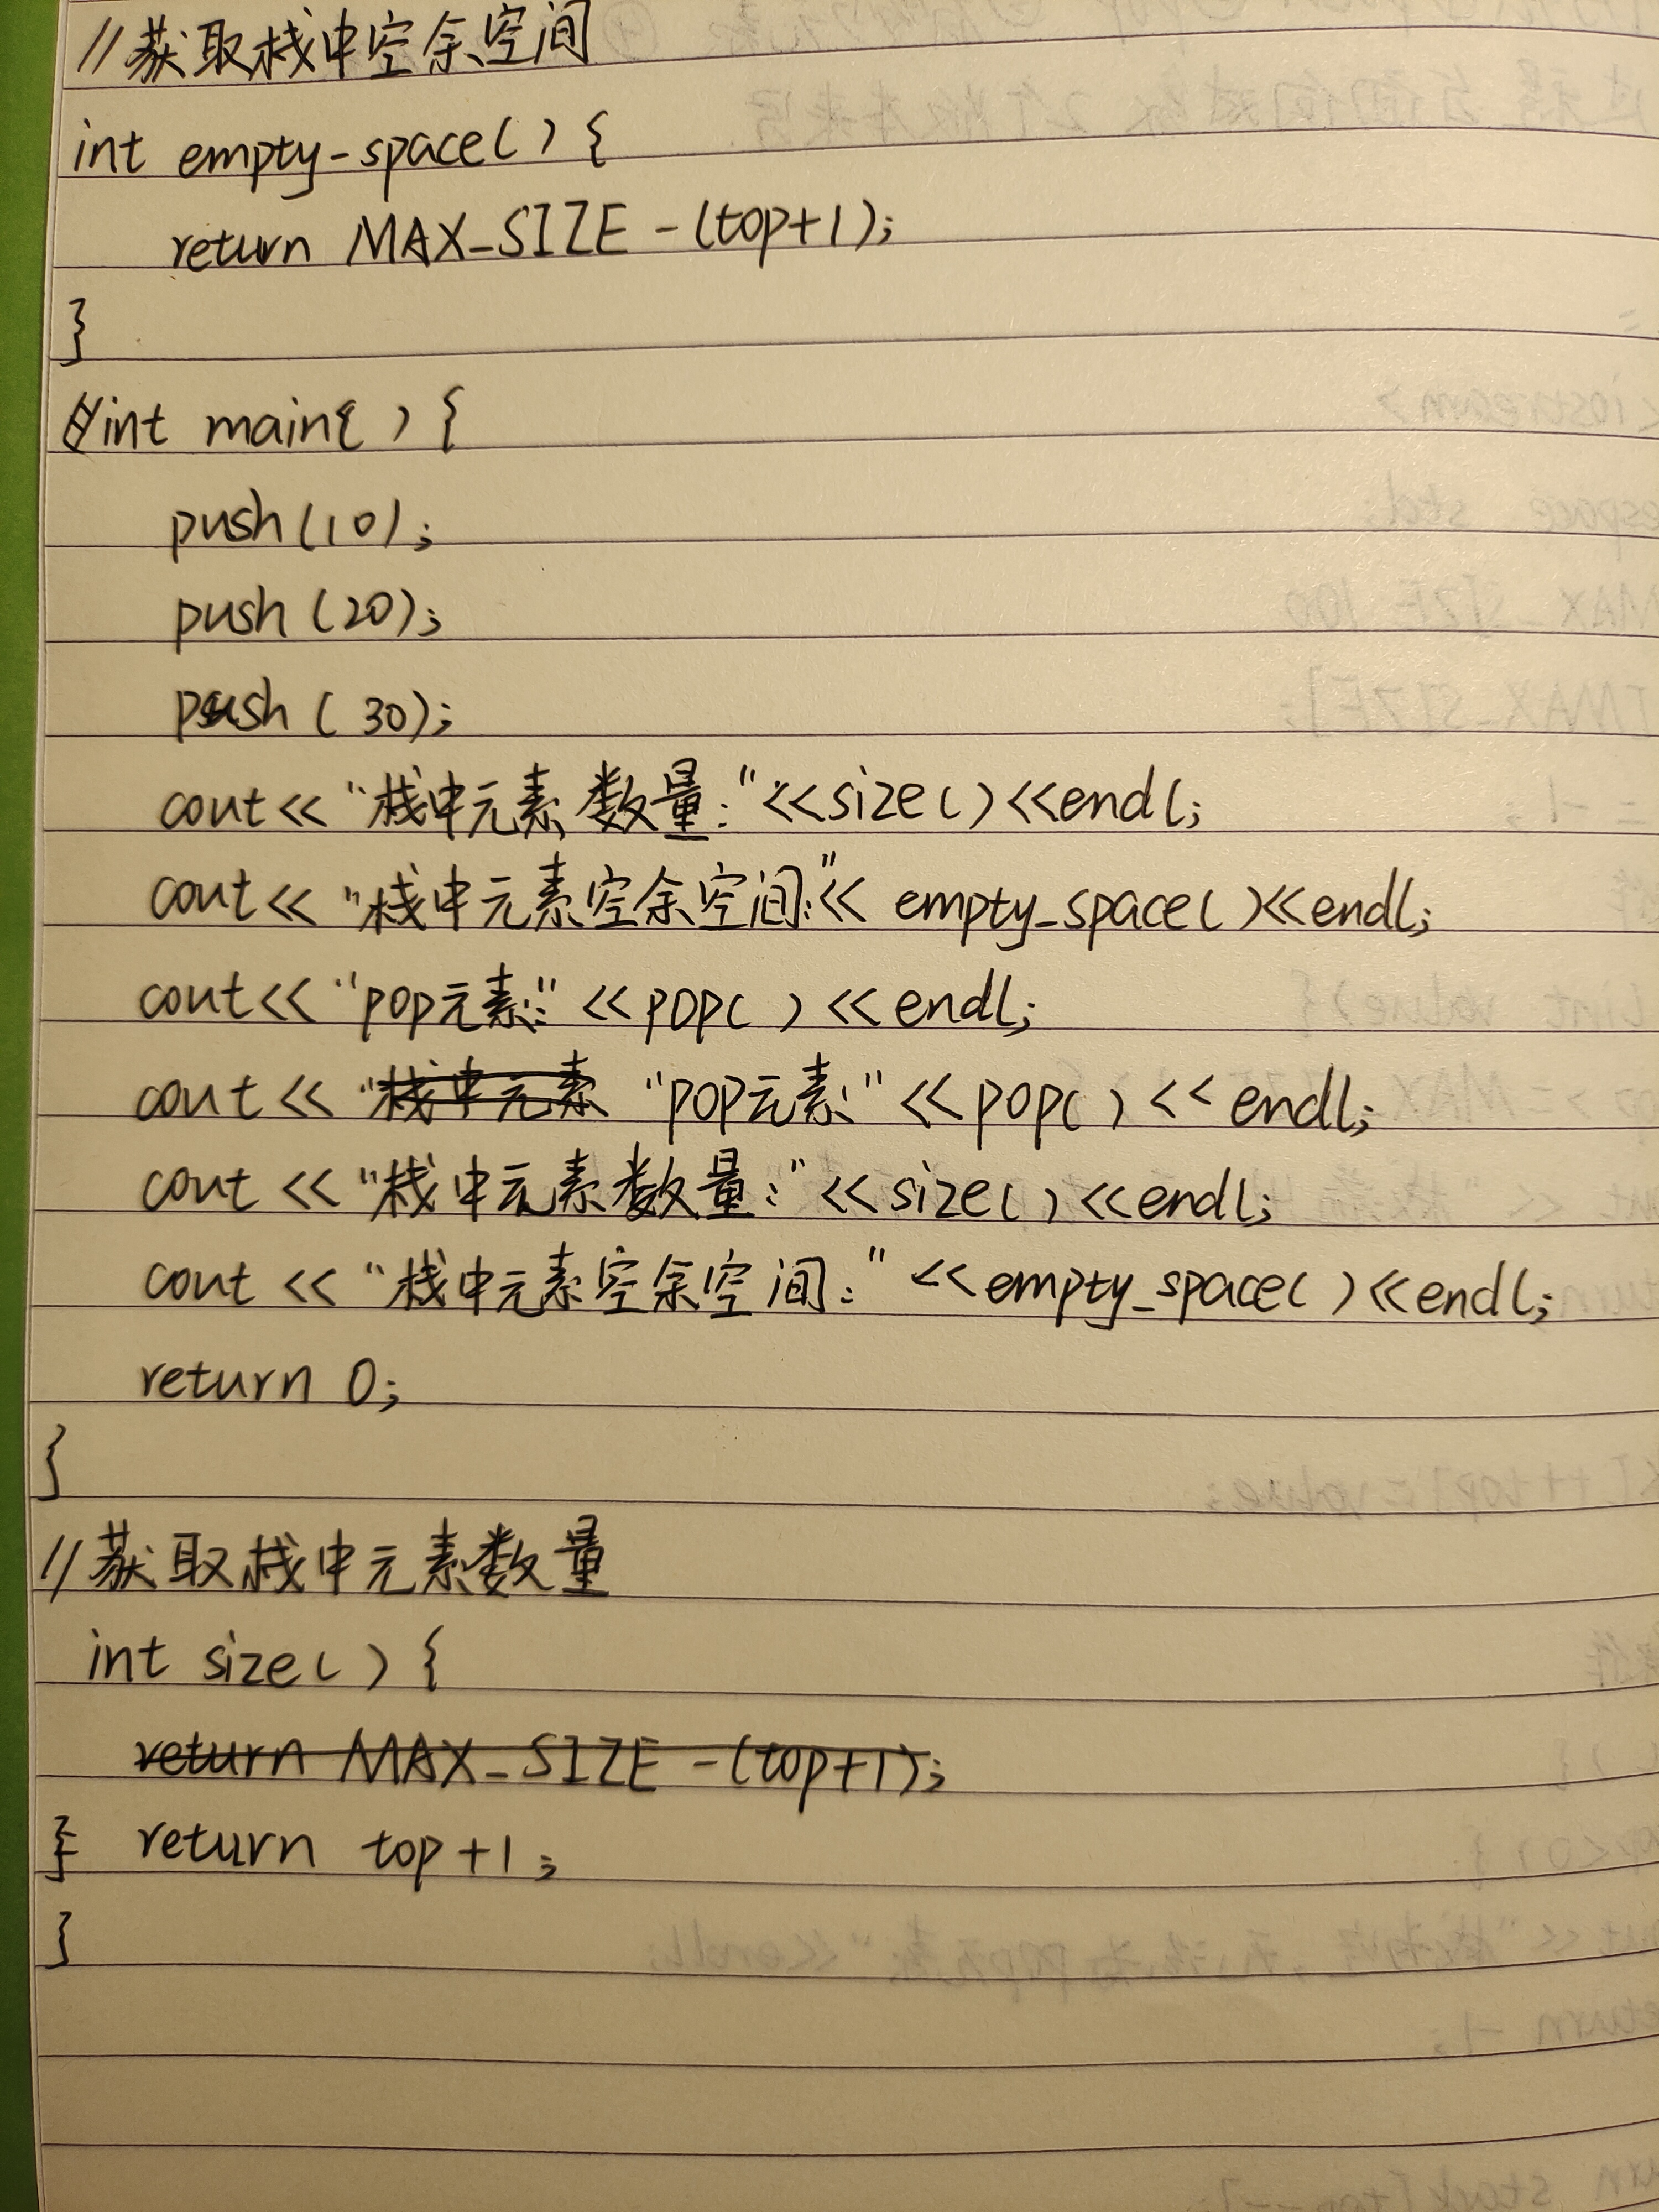 //获取栈中空余空间
int empty-space() {
return MAX_SIZE - (top+1);
}
int main() {
push(10);
push(20);
push(30);
cout<< "栈中元素数量:"<<size()<<endl;
cout<< "栈中元素空余空间:"<< empty_space()<<endl;
cout<< "pop元素:" <<pop() <<endl;
cout << "栈中元素 "pop元素:" <<pop() << endl;
cout << "栈中元素数量:"<<size()<<endl;
cout << "栈中元素空余空间:" <<empty_space()<<endl;
return 0;
}
//获取栈中元素数量
int size() {
return MAX_SIZE -(top+1);
} return top+1;
}